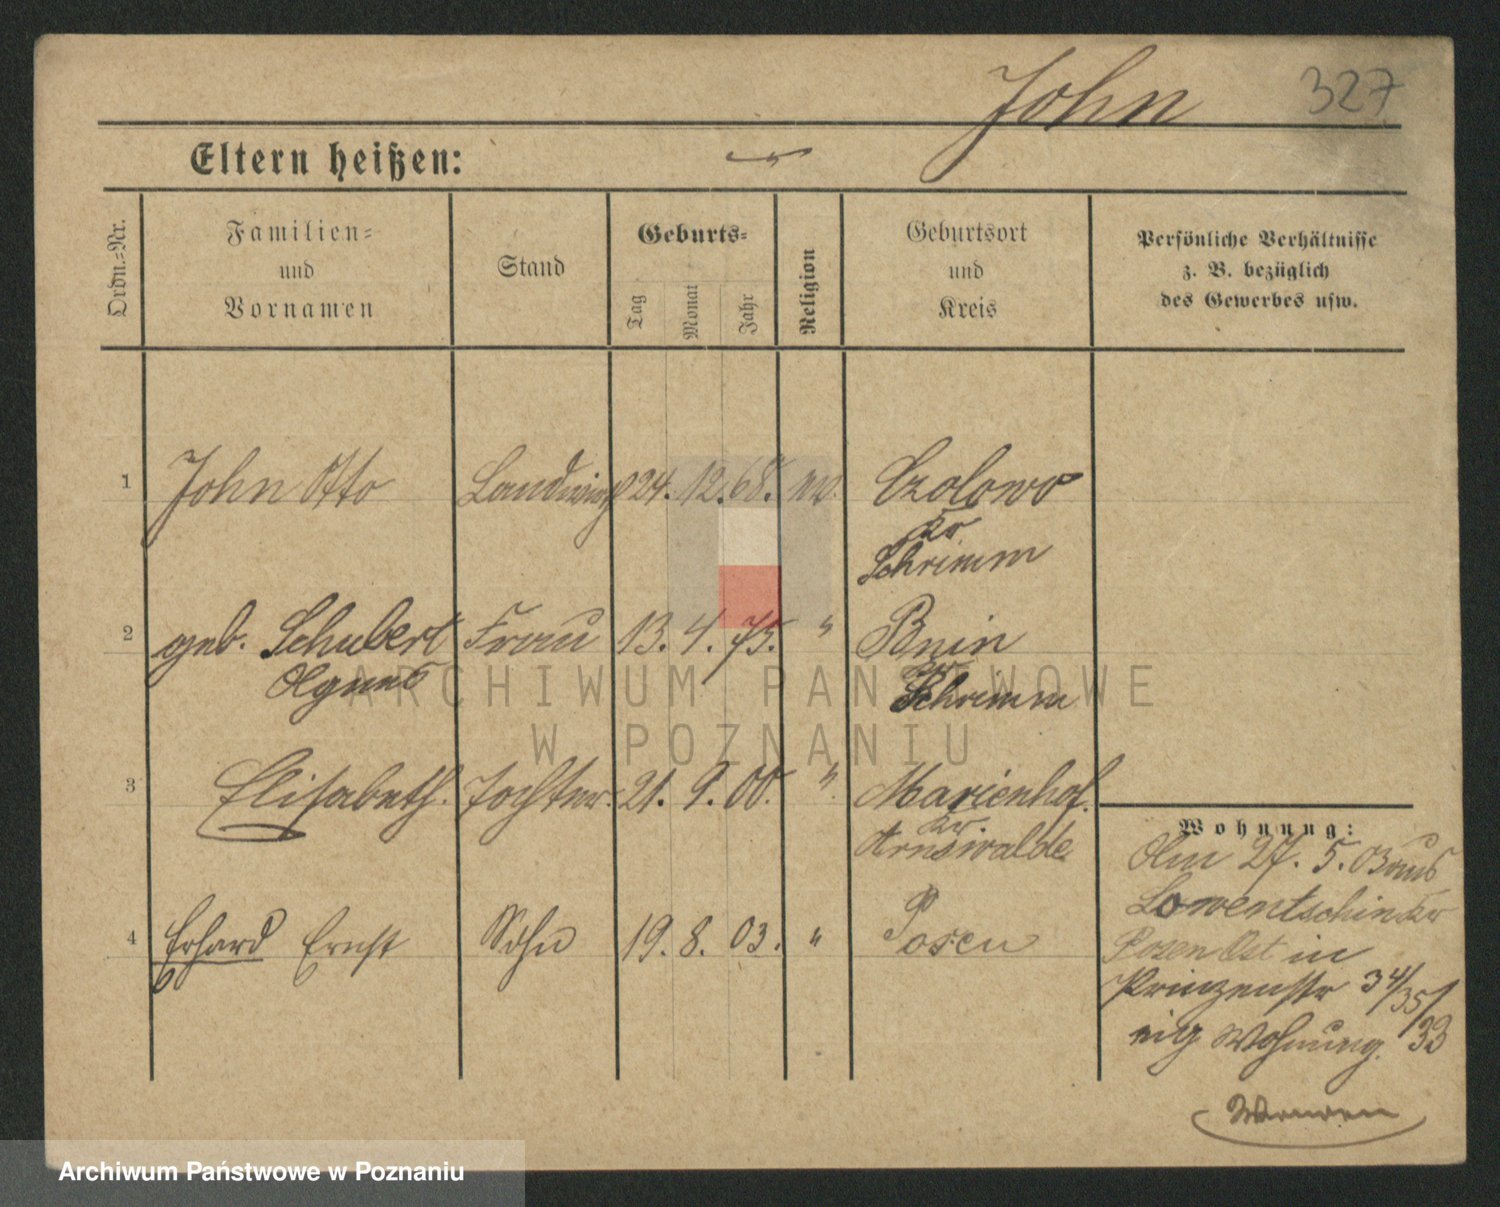 John 327
Eltern heißen:
Ordn.=Nr.
Familien=
und
Vornamen
Stand
Geburts=
Tag
Monat
Jahr
Religion
Geburtsort
und
Kreis
Persönliche Verhältnisse
z. B. bezüglich
des Gewerbes usw.
1 John Otto Landwirt 24. 12. 68. ev. Czolowo
Kr
Schrimm
2 geb. Schubert Frau 13. 4. 75. " Bnin
Agnes Kr Schrimm
3 Elisabeth. Tochter. 21. 9. 00. " Marienhof.
Kr.
Arnswalde
4 Erhard Ernst Sohn 19. 8. 03. " Posen
Wohnung:
Am 27. 5. 03 aus
Lowentschin Kr
Posen Ost in
Prinzenstr 34/35/
eig Wohnung. 33
ARCHIWUM PAŃSTWOWE
W POZNANIU
Archiwum Państwowe w Poznaniu